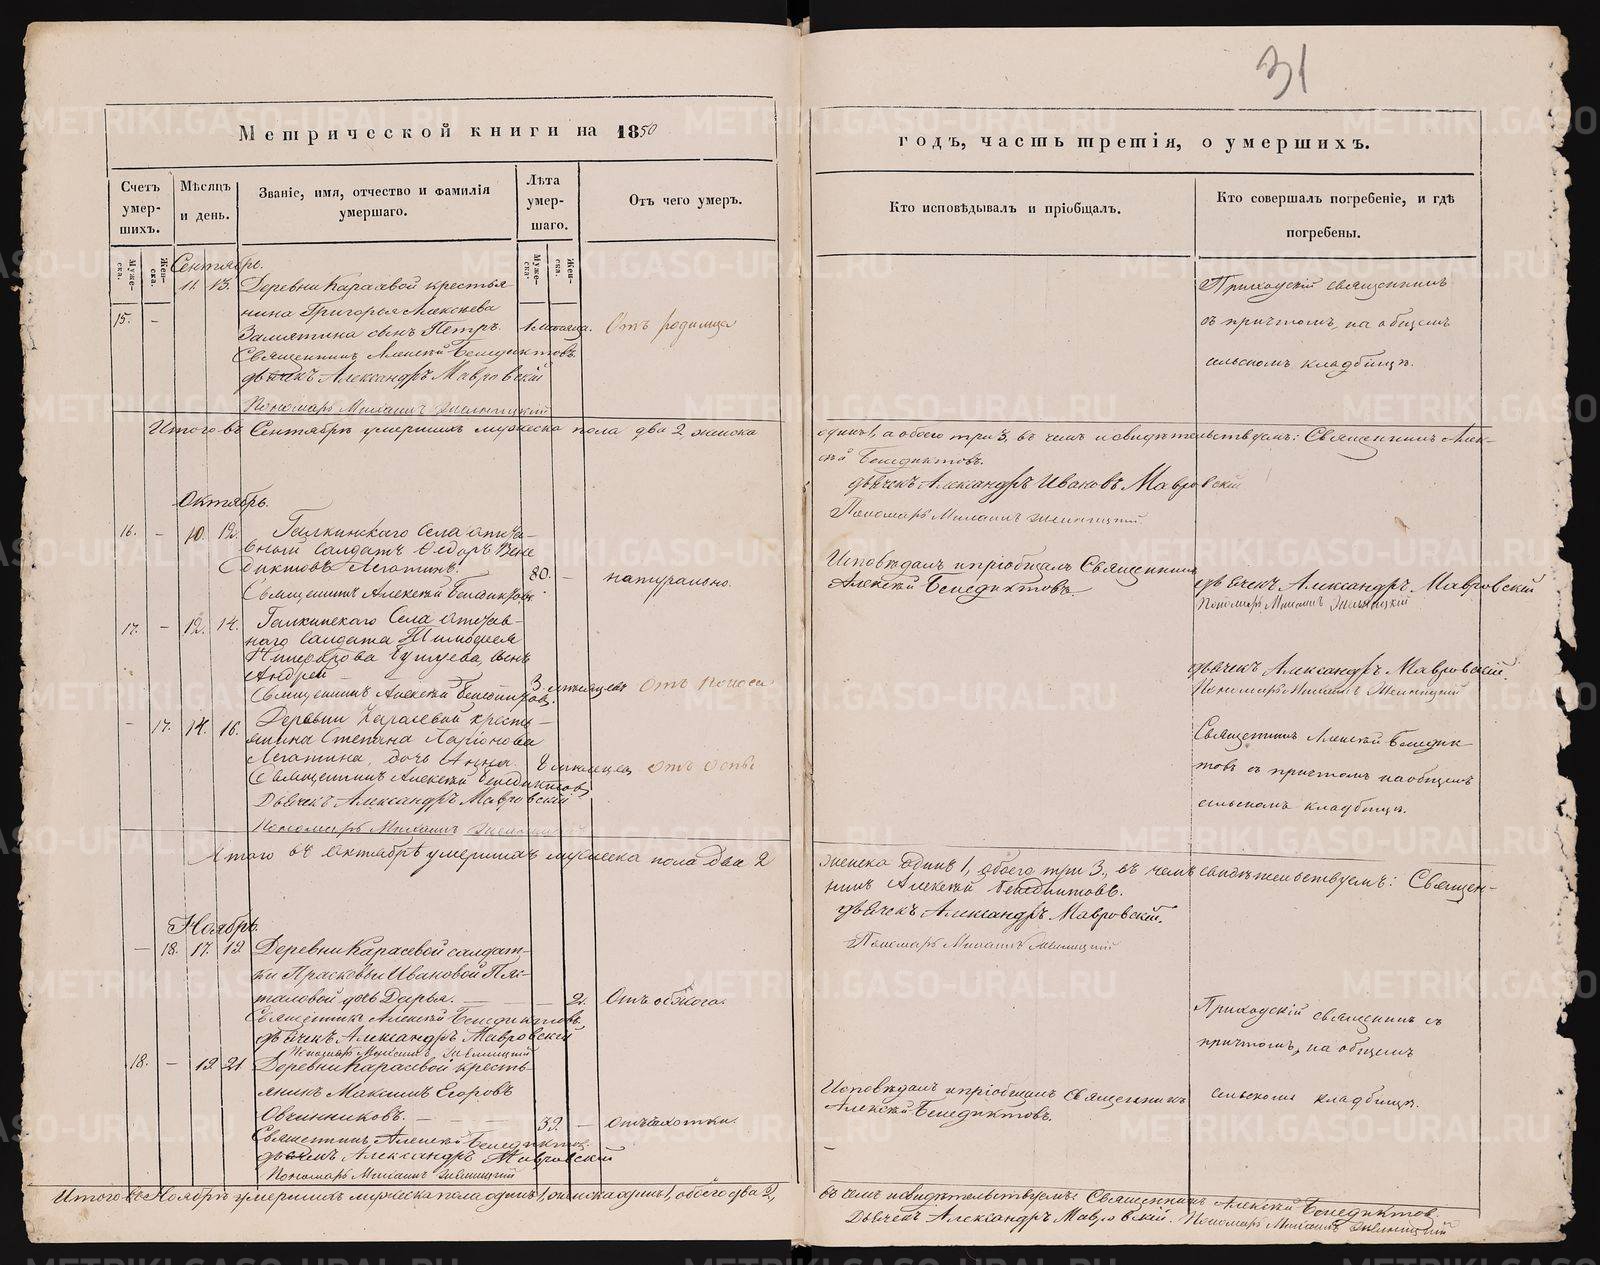 31
Метрической книги на 1850
годъ, часть третія, о умершихъ.
Счетъ умер-шихъ.
Мѣсяцъ и день.
Званіе, имя, отчество и фамилія умершаго.
Лѣта умер-шаго.
Отъ чего умеръ.
Кто исповѣдывалъ и пріобщалъ.
Кто совершалъ погребеніе, и гдѣ погребены.
Муже-ска.
Жен-ска.
Муже-ска.
Жен-ска.
Сентябрь.
11. 13. Деревни Карасевой крестья
15. – нина Григорья Алексѣева
Замятина сынъ Петръ. 1 мѣсяца. Отъ родимца
Священникъ Алексѣй Бенедиктовъ
дьячекъ Александръ Мавровскій
Пономарь Михаилъ
Приходскій священникъ
съ причтомъ, на общемъ
сельскомъ кладбищѣ.
Итого въ Сентябрѣ умершихъ мужеска пола два 2, женска
одинъ 1, а обоего три 3, въ чемъ и свидѣтельствуемъ: Священникъ Алек-
сѣй Бенедиктовъ.
дьячекъ Александръ Ивановъ Мавровскій
Пономарь Михаилъ
Октябрь.
16. – 10. 12. Галкинскаго Села отста-
вной Салдатъ Ѳедоръ Вене
диктовъ Легатинъ. 80. – натурально.
Священникъ Алексѣй Бенедиктовъ
Исповѣдалъ и пріобщалъ Священникъ
Алексѣй Бенедиктовъ.
дьячекъ Александръ Мавровскій
Пономарь Михаилъ
17. – 12. 14. Галкинскаго Села отстав-
наго Салдата Тимофея
сынъ
Андрей –
Священникъ Алексѣй Бенедиктовъ. 3 мѣсяцевъ Отъ поноса
дьячекъ Александръ Мавровскій.
Пономарь Михаилъ
– 17. 14. 16. Деревни Карасевой кресть-
янина Степана Ларіонова
Легатина, дочь Анна. 2 мѣсяцев Отъ оспы
Священникъ Алексѣй Бенедиктовъ
Дьячекъ Александръ Мавровскій
Пономарь Михаилъ
Священникъ Алексѣй Бенедик-
товъ съ причтомъ на общемъ
сельскомъ кладбищѣ.
Итого въ Октябрѣ умершихъ мужеска пола два 2
женска одинъ 1, обоего три 3, въ чемъ свидѣтельствуемъ: Священ-
никъ Алексѣй Бенедиктовъ.
дьячекъ Александръ Мавровскій.
Пономарь Михаилъ
Ноябрь.
– 18. 17. 19 Деревни Карасевой салдат-
ки Прасковьи Ивановой Пя-
таловой дочь Дарья. – 2. Отъ обжога.
Священникъ Алексѣй Бенедиктовъ
дьячекъ Александръ Мавровскій
Пономарь Михаилъ
Приходскій священникъ съ
причтомъ, на общемъ
сельскомъ кладбищѣ.
18. – 19 21 Деревни Карасевой кресть-
янинъ Максимъ Егоровъ
Овчинниковъ. – 39. – отъ чахотки.
Священникъ Алексѣй Бенедиктов
дьячекъ Александръ Мавровскій
Пономарь Михаилъ
Исповѣдалъ и пріобщилъ Священникъ
Алексѣй Бенедиктовъ.
Итого въ Ноябрѣ умершихъ мужеска пола одинъ 1, женска одинъ 1, обоего два 2,
въ чемъ и свидѣтельствуемъ: Священникъ Алексѣй Бенедиктов
Дьячекъ Александръ Мавровскій. Пономарь Михаилъ
METRIKI.GASO-URAL.RU